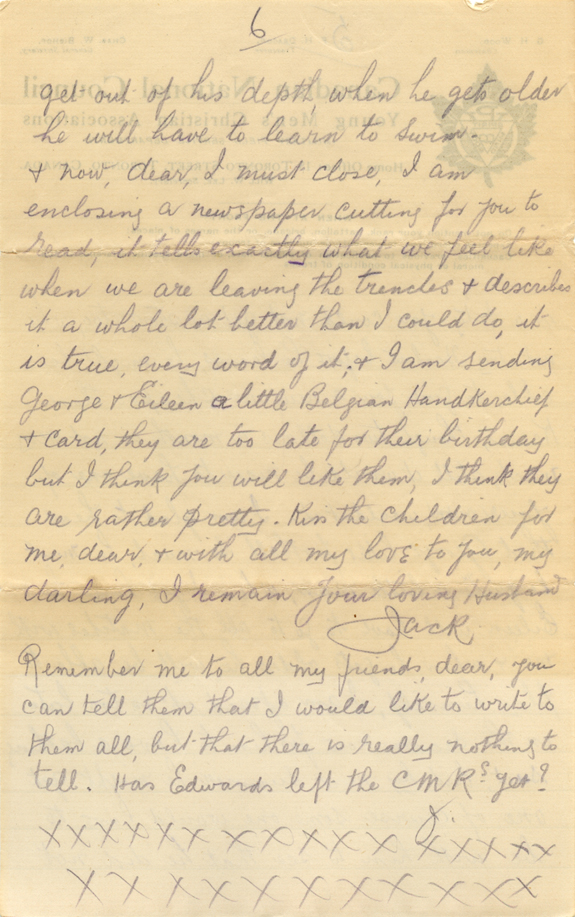 6
get out of his depth when he gets older
he will have to learn to swim.
& now, dear, I must close, I am
enclosing a newspaper cutting for you to
read, it tells exactly what we feel like
when we are leaving the trenches & describes
it a whole lot better than I could do, it
is true, every word of it, & I am sending
George & Eileen a little Belgian Handkerchief
& card, they are too late for their birthday
but I think you will like them, I think they
are rather pretty. Kiss the children for
me, dear, & with all my love to you, my
darling, I remain Your loving Husband
Jack
Remember me to all my friends, dear, you
can tell them that I would like to write to
them all, but that there is really nothing to
tell. Has Edwards left the CMRs yet?
J.
XXXXXXX XXXXXX XXXXXX
XX XXXXXXXXXXX